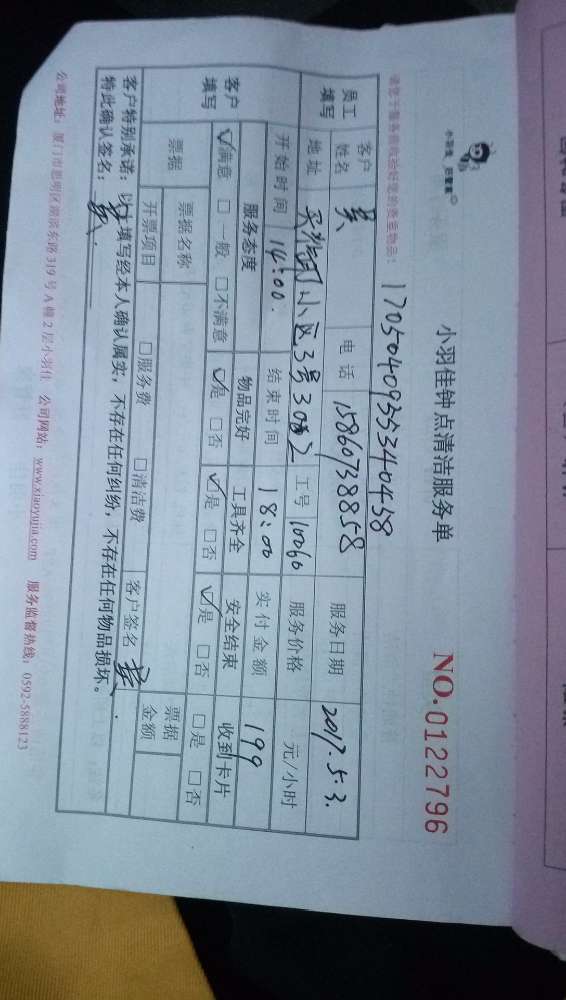 小羽佳 巴菲熊
小羽佳钟点清洁服务单
NO.0122796
请您于服务前收拾好您的贵重物品!
1705040935340438
员工填写
客户姓名 吴 电话 15860738858 服务日期 2017.5.3.
地址 小区3号 工号 10060 服务价格 元/小时
开始时间 14:00. 结束时间 18:00 实付金额 199
客户填写
服务态度 物品完好 工具齐全 安全结束 收到卡片
☑满意 □一般 □不满意 ☑是 □否 ☑是 □否 ☑是 □否 □是 □否
票据 票据名称 票据金额
开票项目 □服务费 □清洁费 客户签名
客户特别承诺:以上填写经本人确认属实,不存在任何纠纷,不存在任何物品损坏。
特此确认签名:
公司地址:厦门市思明区湖滨东路319号A幢2层小羽佳 公司网站:www.xiaoyujia.com 服务监督热线:0592-5888123